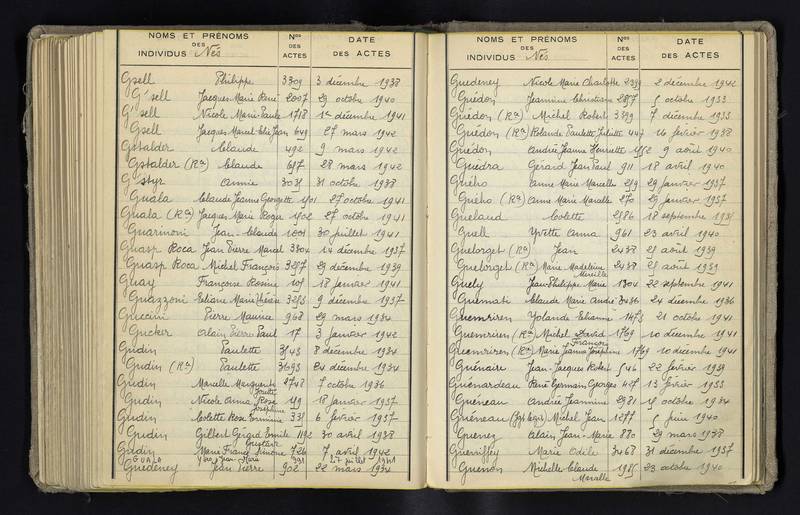 NOMS ET PRÉNOMS DES INDIVIDUS Nés Nos DES ACTES DATE DES ACTES
Gsell Philippe 3309 3 décembre 1938
G'sell Jacques Marie René 2007 29 octobre 1940
G'sell Nicole Marie Paule 1718 1er décembre 1941
Gsell Jacques Marcel Elie Jean 649 27 mars 1942
Gstalder Claude 492 9 mars 1942
Gstalder (Ra) Claude 28 mars 1942
G'styr Annie 3031 31 octobre 1938
Guala Claude Jeanne Georgette 1501 27 octobre 1941
Guala (Ra) Jacques Marie Roger 1502 27 octobre 1941
Guarinoni Jean-Claude 1001 30 juillet 1941
Guasp Roca Jean Pierre Marcel 3304 14 décembre 1937
Guasp Roca Michel François 3257 29 décembre 1939
Guay Françoise Rosine 107 18 janvier 1941
Guazzoni Eliane Marie Thérèse 3253 9 décembre 1937
Guccini Pierre Maurice 968 29 mars 1934
Gucker Alain Pierre Paul 17 3 janvier 1942
Gudin Paulette 3543 8 décembre 1934
Gudin (Ra) Paulette 3693 24 décembre 1934
Gudin Marcelle Marguerite 2748 7 octobre 1936
Gudin Nicole Anna Rose 149 18 janvier 1937
Gudin Colette Rose Joséphine 331 6 février 1937
Gudin Gilbert Gérard Emile 1192 30 avril 1938
Gudin Marie France Simone 726 7 avril 1942
GUALA Jean Marie 991 27 juillet 1941
Guedeney Jean Pierre 902 22 mars 1934
NOMS ET PRÉNOMS DES INDIVIDUS Nés Nos DES ACTES DATE DES ACTES
Guedeney Nicole Marie Charlotte 2399 2 décembre 1942
Guédon Jeannine Christiane 2857 5 octobre 1933
Guédon (Ra) Michel Robert 3399 7 décembre 1933
Guédon (Ra) Rolande Paulette Juliette 447 16 février 1938
Guédon Andrée Jeanne Henriette 1552 9 août 1940
Guedra Gérard Jean Paul 911 18 avril 1940
Guého Anne Marie Marcelle 259 29 janvier 1937
Guého (Ra) Anne Marie Marcelle 270 29 janvier 1937
Gueland Colette 2586 18 septembre 1931
Guell Yvette Anna 961 23 avril 1940
Guelorget (Ra) Jean 2438 21 août 1939
Guelorget (Ra) Marie Madeleine Mireille 2438 21 août 1939
Guely Jean Philippe Marie 1304 22 septembre 1941
Guemati Claude Marie André 3486 24 décembre 1936
Guemriren Yolande 1473 21 octobre 1941
Guemriren (Ra) Michel David François 1769 10 décembre 1941
Guemriren (Ra) Marie Jeanne Joséphine 1769 10 décembre 1941
Guénaire Jean-Jacques Robert 546 22 février 1939
Guénardeau René Germain Georges 457 13 février 1933
Guéneau Andrée Jeannine 2981 15 octobre 1934
Guéneau Michel Jean 1277 5 juin 1940
Guenez Alain Jean-Marie 880 29 mars 1938
Marie Odile 3468 31 décembre 1937
Guenon Michelle Claude Marcelle 1985 23 octobre 1940